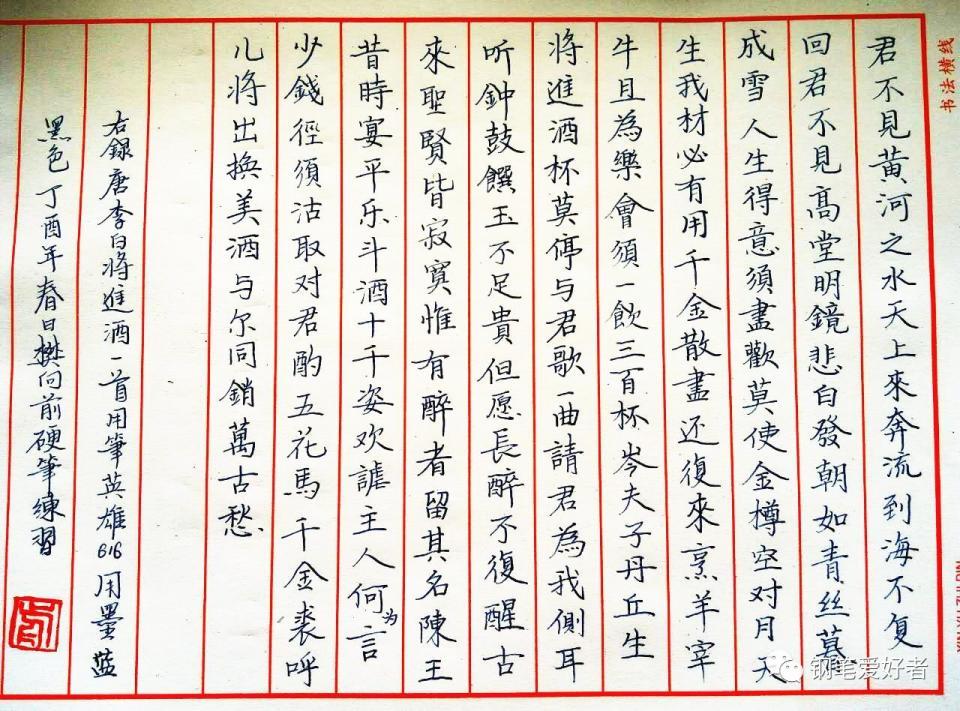 君不見黃河之水天上來奔流到海不复
回君不見高堂明鏡悲白發朝如青丝暮
成雪人生得意須盡歡莫使金樽空对月天
生我材必有用千金散盡还復來烹羊宰
牛且為樂會須一飲三百杯岑夫子丹丘生
将進酒杯莫停与君歌一曲請君為我側耳
听鈡鼓饌玉不足貴但愿長醉不復醒古
來聖賢皆寂寞惟有醉者留其名陳王
昔時宴平乐斗酒十千姿欢謔主人何为言
少錢徑須沽取对君酌五花馬千金裘呼
儿将出換美酒与尔同銷萬古愁
右録唐李白将進酒一首用筆英雄616用墨蓝
黑色丁酉年春日樊向前硬筆練習
书法横线
钢笔爱好者